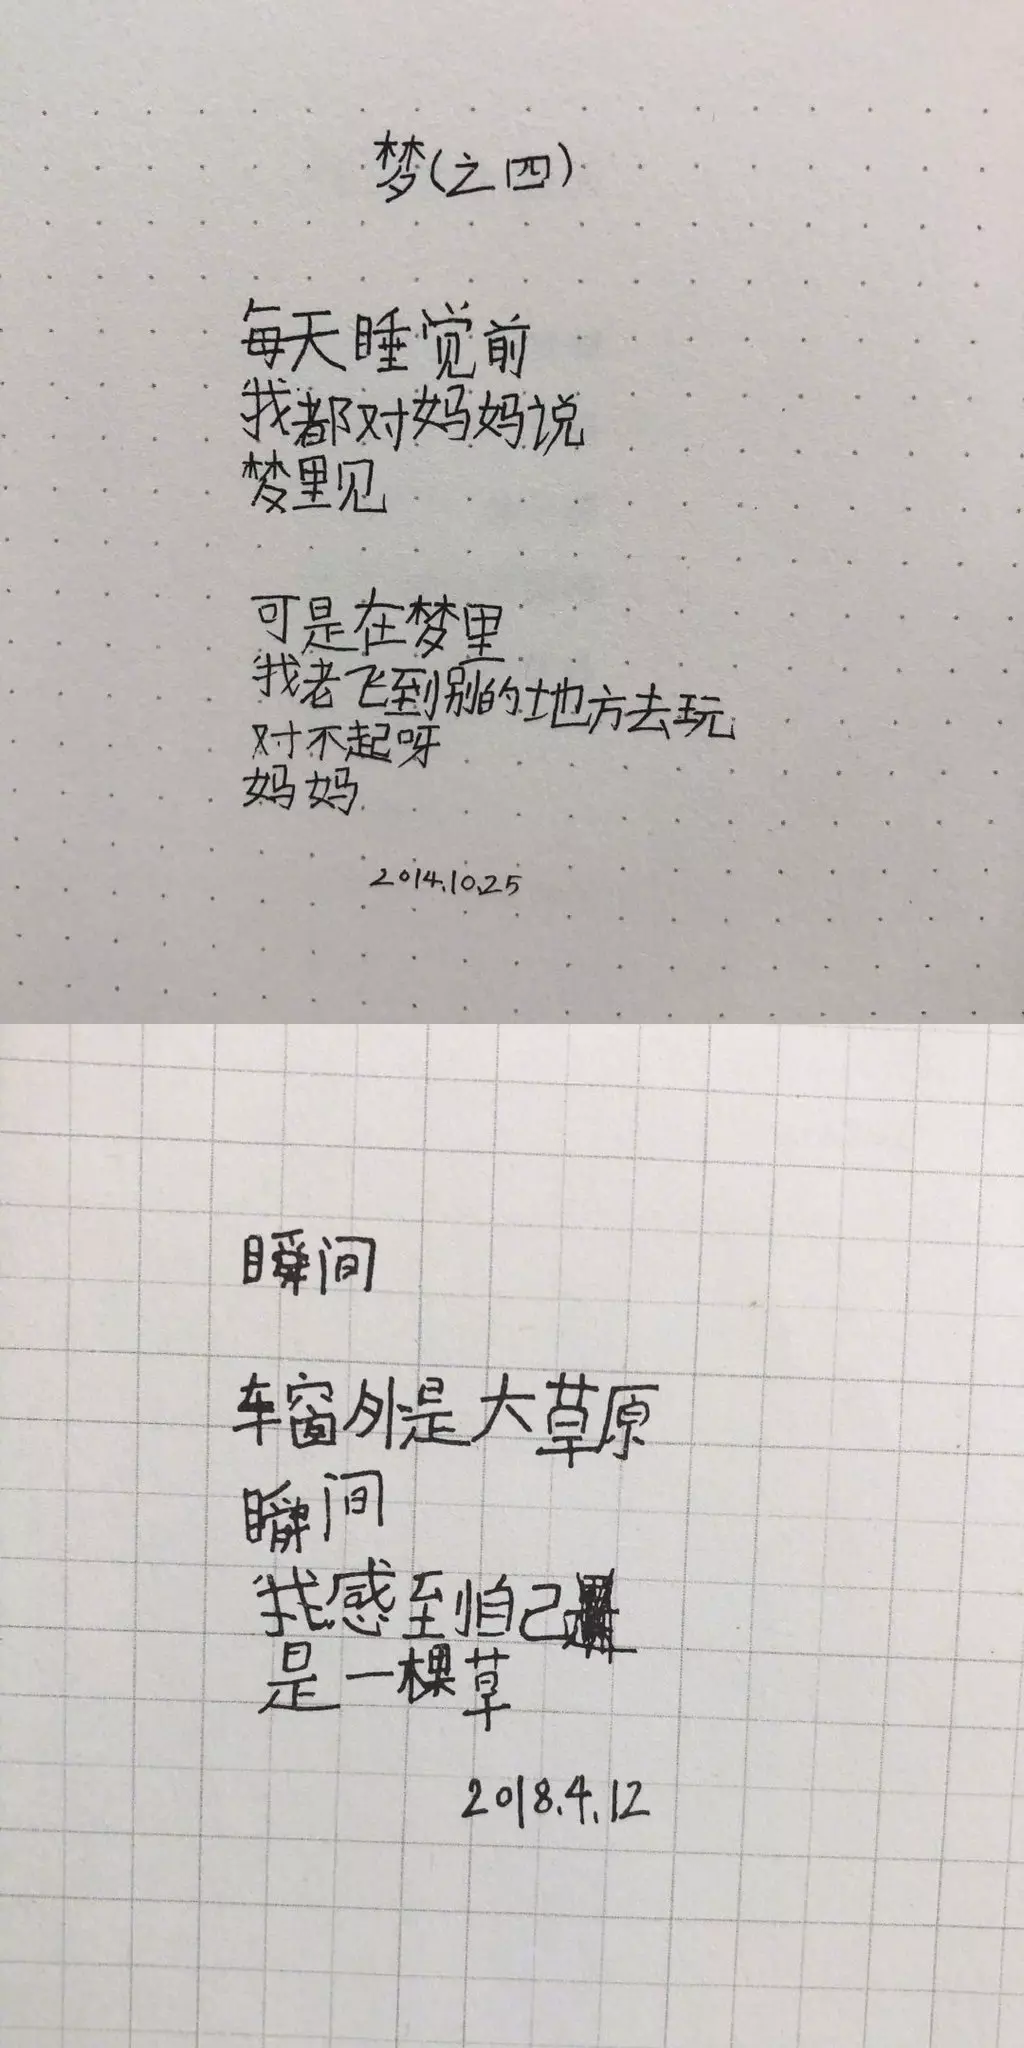 梦(之四)
每天睡觉前
我都对妈妈说
梦里见
可是在梦里
我老飞到别的地方去玩
对不起呀
妈妈
2014.10.25
瞬间
车窗外是大草原
瞬间
我感到自己
是一棵草
2018.4.12